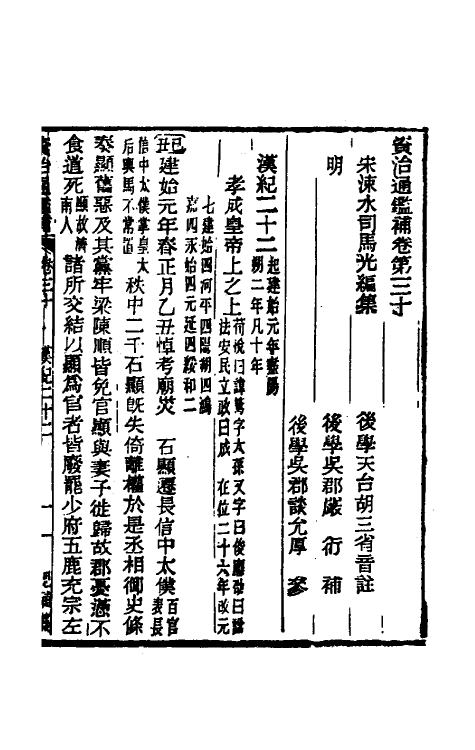 資治通鑑補卷第三十
宋涑水司馬光編集
後學天台胡三省音註
明
後學吳郡嚴衍補
後學吳郡談允厚參
漢紀二十二
起建始元年盡陽
朔二年凡十年
孝成皇帝上之上
荀悅曰諱驁字太孫又字曰俊應劭曰諡
法安民立政曰成 在位二十六年改元
七建始四河平四陽朔四鴻
嘉四永始四元延四綏和二
己丑建始元年春正月乙丑悼考廟災 石顯遷長信中太僕
百官表長
信中太僕掌皇太
后輿馬不常置
秩中二千石顯既失倚離權於是丞相御史條
奏顯舊惡及其黨牢梁陳順皆免官顯與妻子徙歸故郡憂懣不
食道死
顯故濟
南人
諸所交結以顯為官者皆廢罷少府五鹿充宗左
資治通鑑補
卷三十
漢紀二十二
一